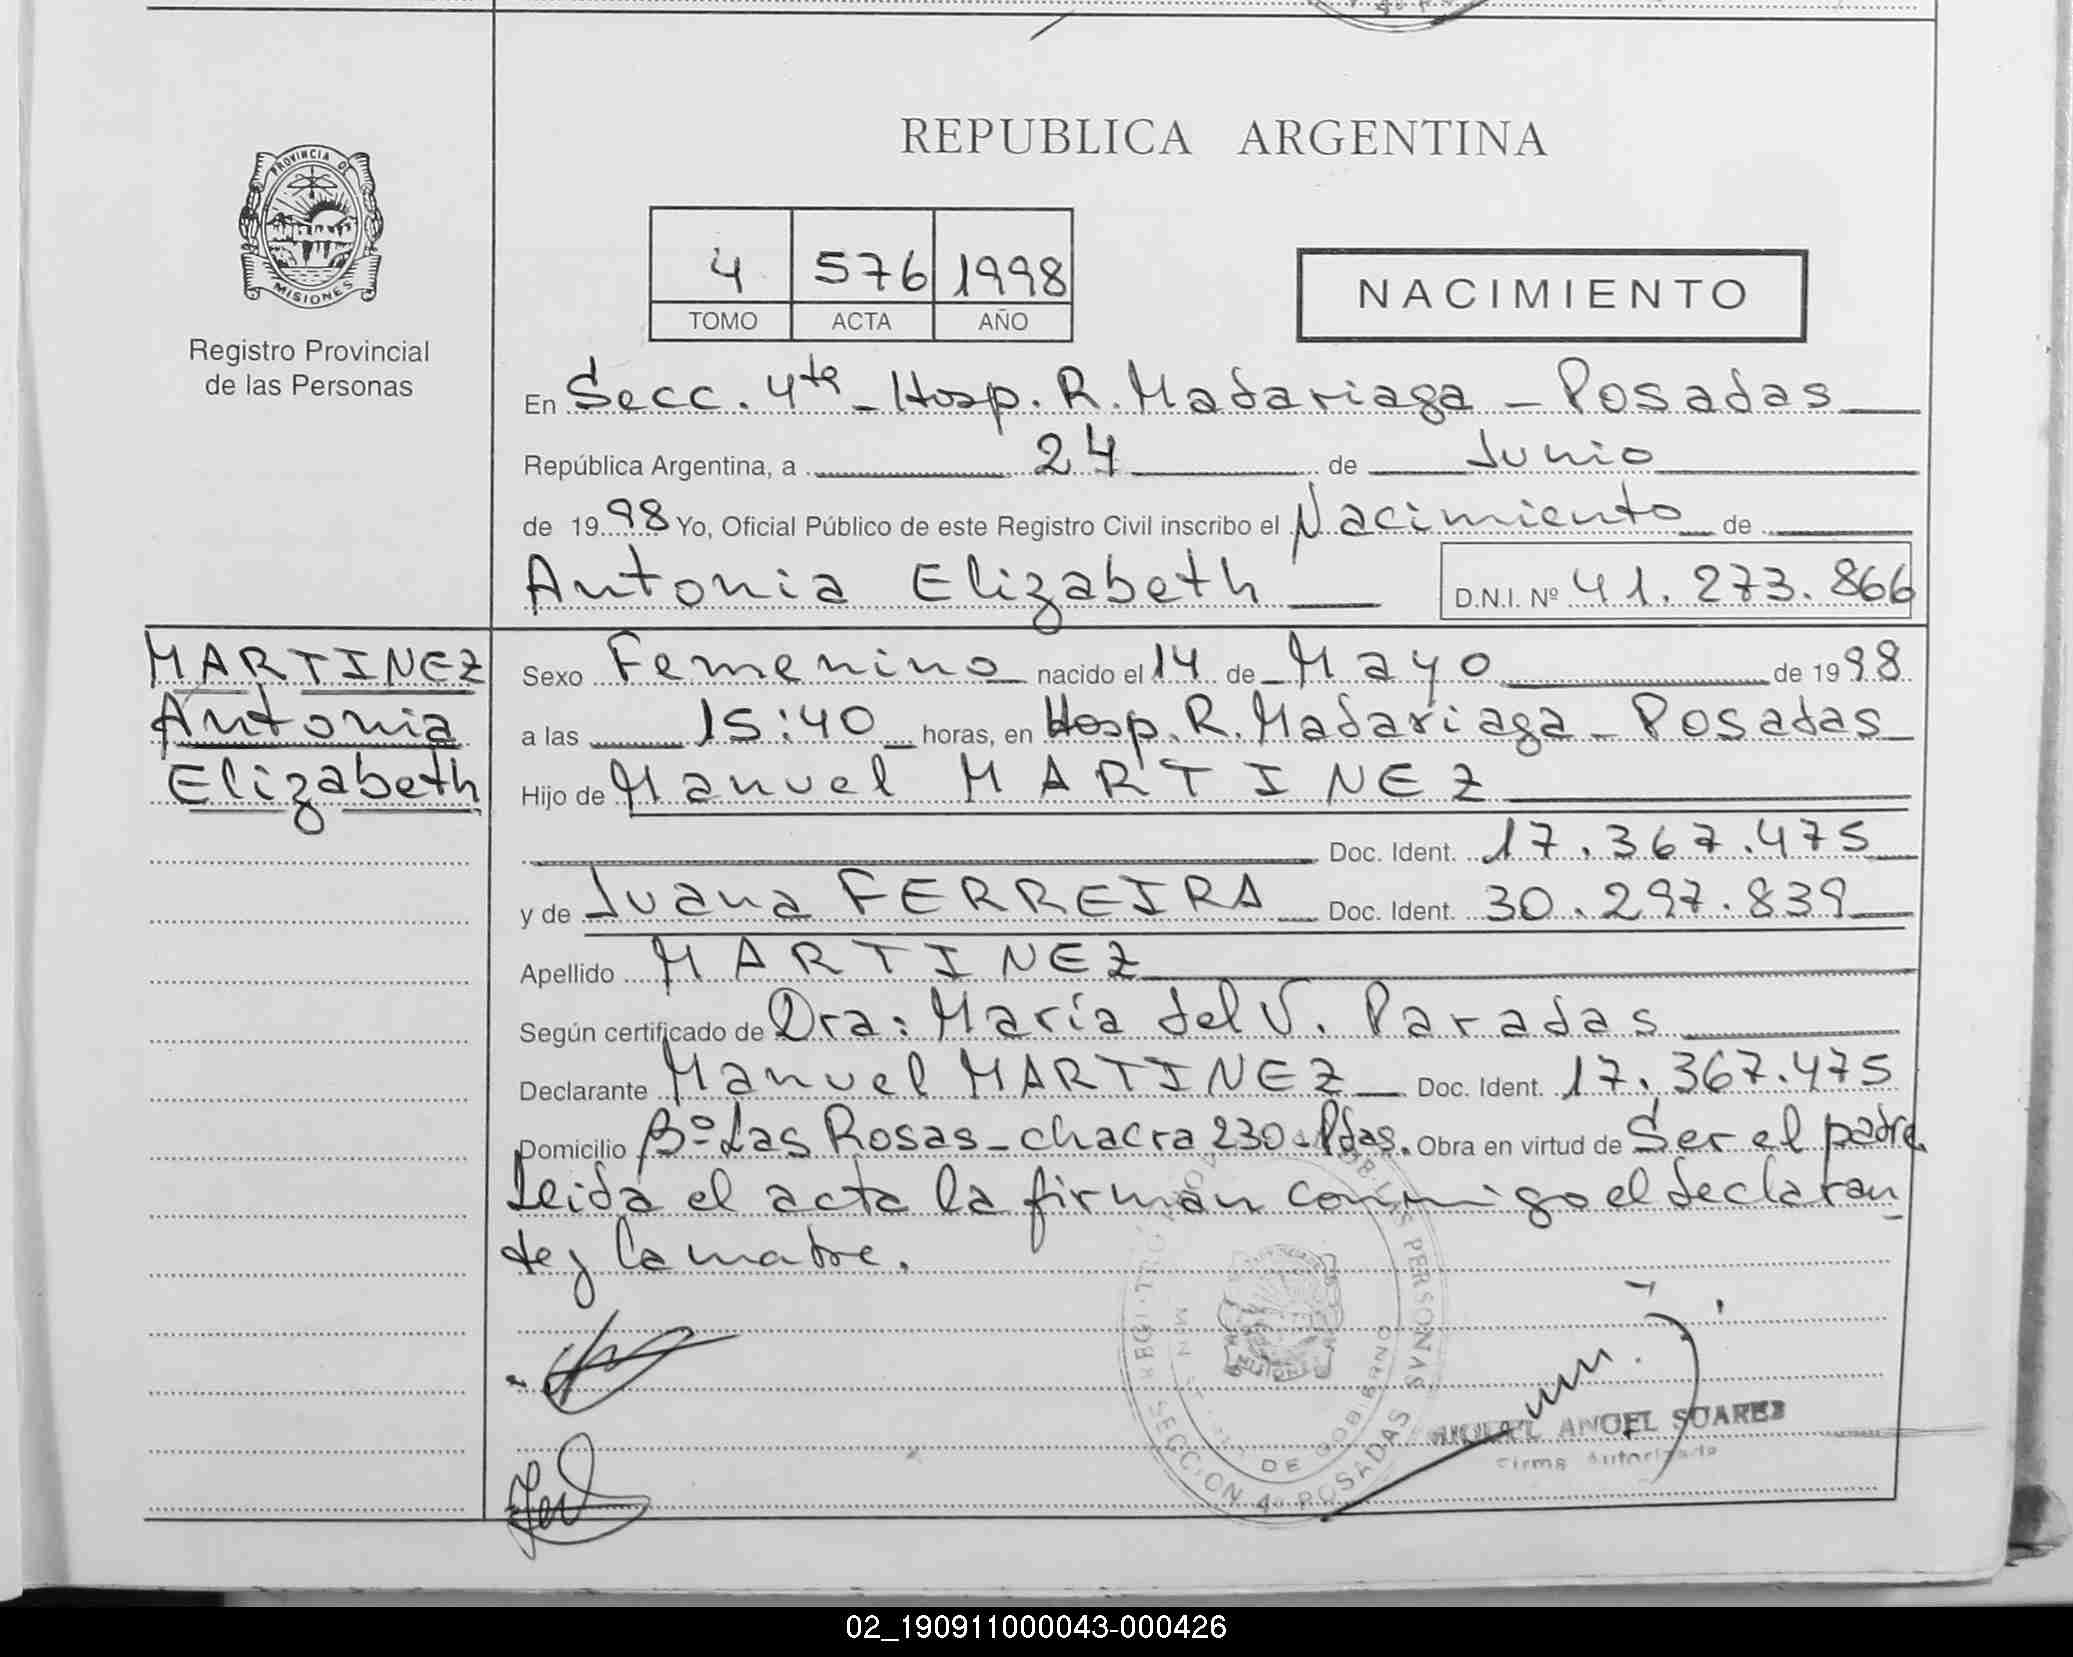 REPUBLICA ARGENTINA
PROVINCIA DE
MISIONES
Registro Provincial
de las Personas
4 576 1998
TOMO ACTA AÑO
NACIMIENTO
En Secc. 4ta - Hosp. R. Madariaga - Posadas
República Argentina, a 24 de Junio
de 1998 Yo, Oficial Público de este Registro Civil inscribo el Nacimiento de
Antonia Elizabeth D.N.I. Nº 41.273.866
MARTINEZ
Antonia
Elizabeth
Sexo Femenino nacido el 14 de Mayo de 1998
a las 15:40 horas, en Hosp. R. Madariaga - Posadas
Hijo de Manuel MARTINEZ
Doc. Ident. 17.367.475
y de Juana FERREIRA Doc. Ident. 30.297.839
Apellido MARTINEZ
Según certificado de Dra: María del V. Paradas
Declarante Manuel MARTINEZ Doc. Ident. 17.367.475
Domicilio Bº Las Rosas - chacra 230 - Pdas. Obra en virtud de Ser el padre
Leida el acta la firman conmigo el declaran
te y la madre.
DE LAS PERSONAS
DE GOBIERNO
SECCION 4º POSADAS
ANGEL SUAREZ
Firma Autorizada
02_190911000043-000426